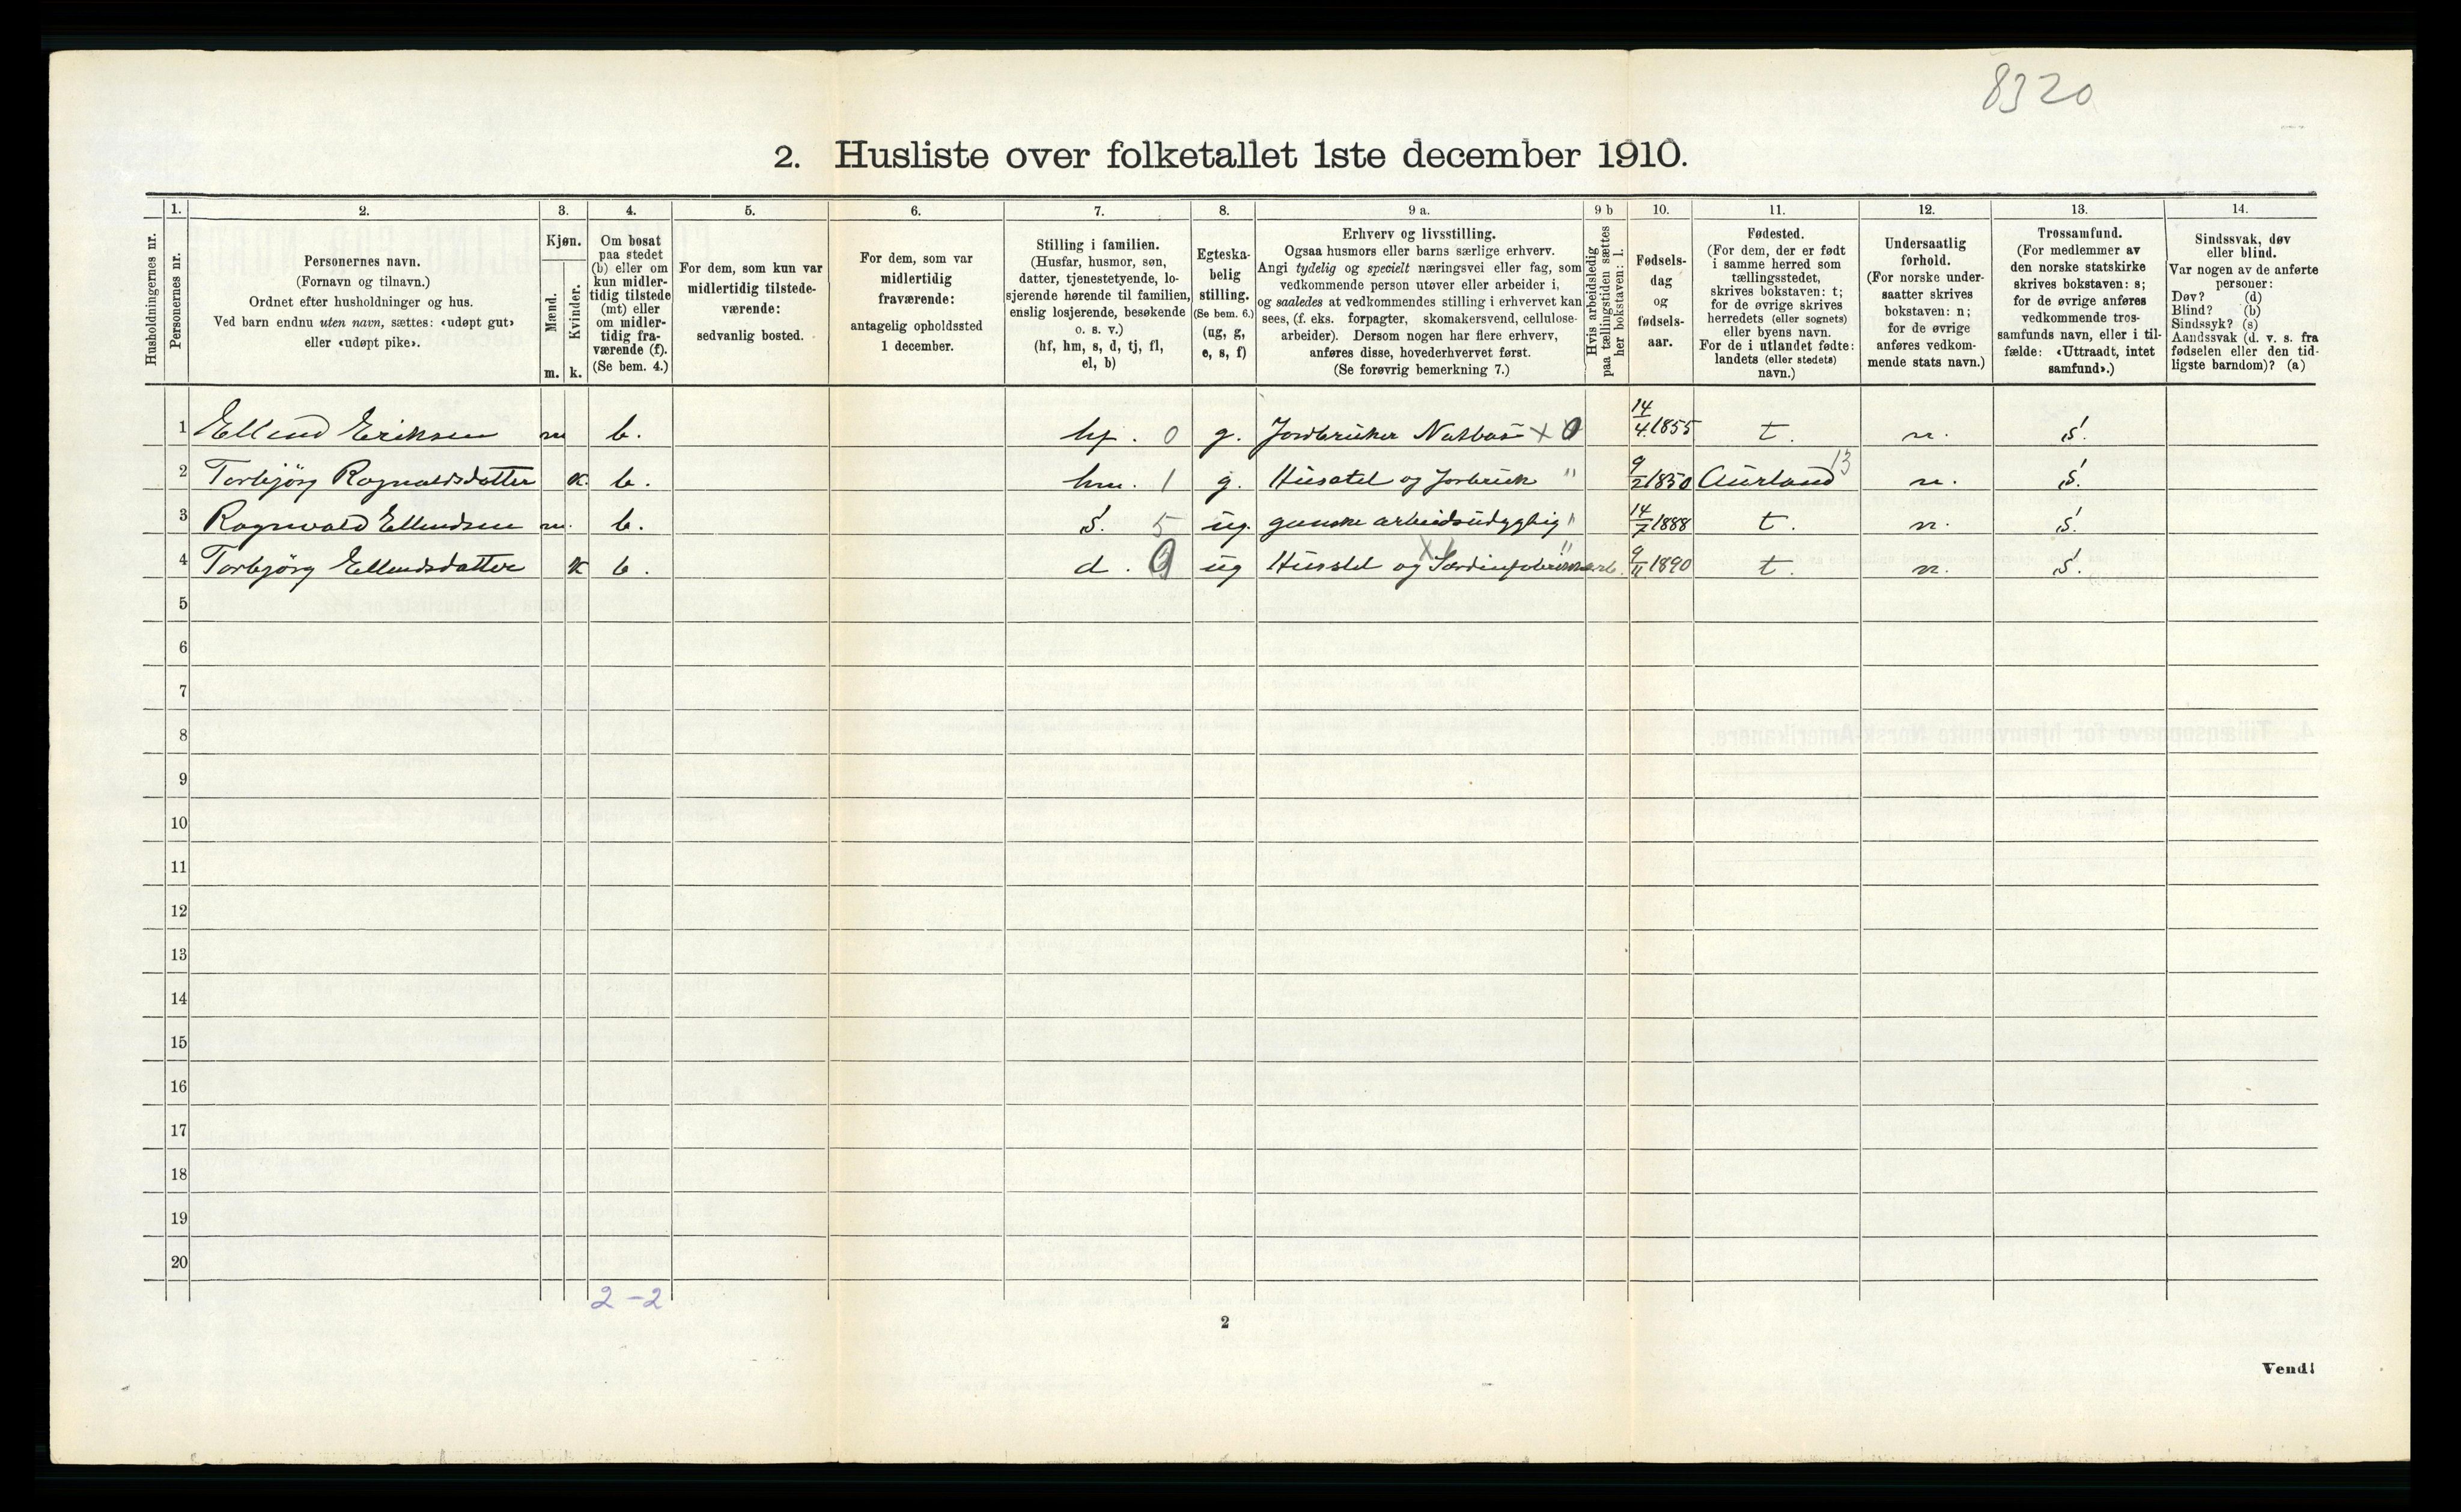 8320
2. Husliste over folketallet 1ste december 1910.
Husholdningernes nr.
1.
Personernes nr.
2.
Personernes navn.
(Fornavn og tilnavn.)
Ordnet efter husholdninger og hus.
Ved barn endnu uten navn, sættes: «udøpt gut»
eller «udøpt pike».
3.
Kjøn.
Mænd.
Kvinder.
m. k.
4.
Om bosat
paa stedet
(b) eller om
kun midler-
tidig tilstede
(mt) eller
om midler-
tidig fra-
værende (f).
(Se bem. 4.)
5.
For dem, som kun var
midlertidig tilstede-
værende:
sedvanlig bosted.
6.
For dem, som var
midlertidig
fraværende:
antagelig opholdssted
1 december.
7.
Stilling i familien.
(Husfar, husmor, søn,
datter, tjenestetyende, lo-
sjerende hørende til familien,
enslig losjerende, besøkende
o. s. v.)
(hf, hm, s, d, tj, fl,
el, b)
8.
Egteska-
belig
stilling.
(Se bem. 6.)
(ug, g,
e, s, f)
9 a.
Erhverv og livsstilling.
Ogsaa husmors eller barns særlige erhverv.
Angi tydelig og specielt næringsvei eller fag, som
vedkommende person utøver eller arbeider i,
og saaledes at vedkommendes stilling i erhvervet kan
sees, (f. eks. forpagter, skomakersvend, cellulose-
arbeider). Dersom nogen har flere erhverv,
anføres disse, hovederhvervet først.
(Se forøvrig bemerkning 7.)
9 b
Hvis arbeidsledig
paa tællingstiden sættes
her bokstaven: l.
10.
Fødsels-
dag
og
fødsels-
aar.
11.
Fødested.
(For dem, der er født
i samme herred som
tællingsstedet,
skrives bokstaven: t;
for de øvrige skrives
herredets (eller sognets)
eller byens navn.
For de i utlandet fødte:
landets (eller stedets)
navn.)
12.
Undersaatlig
forhold.
(For norske under-
saatter skrives
bokstaven: n;
for de øvrige
anføres vedkom-
mende stats navn.)
13.
Trossamfund.
(For medlemmer av
den norske statskirke
skrives bokstaven: s;
for de øvrige anføres
vedkommende tros-
samfunds navn, eller i til-
fælde: «Uttraadt, intet
samfund».)
14.
Sindssvak, døv
eller blind.
Var nogen av de anførte
personer:
Døv? (d)
Blind? (b)
Sindssyk? (s)
Aandssvak (d. v. s. fra
fødselen eller den tid-
ligste barndom)? (a)
1 Ellend Eriksen m b. hf. 0 g. Jordbruker X 0 14/4 1855 t. n. s.
2 Torbjörg Ragnvaldsdatter k. b. hm. 1 g. Husstel og Jorbruk " 9/2 1850 Aurland 13 n. s.
3 Ragnvald Ellendsen m. b. s. 5 ug. ganske arbeidsudygtig " 14/7 1888 t. n. s.
4 Torbjörg Ellendsdatter k b. d. ug Husstel og Sardinfabrikkarb. " 9/11 1890 t. n. s.
5
6
7
8
9
10
11
12
13
14
15
16
17
18
19
20
2-2
2
Vend!